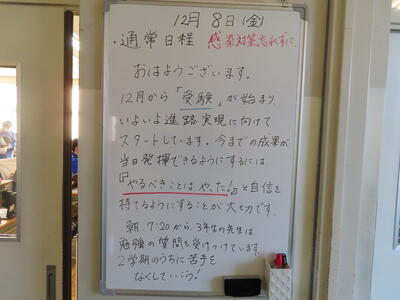 12月8日(金)
・通常日程 感染対策忘れずに
おはようございます。
12月から「受験」が始まり、
いよいよ進路実現に向けて
スタートしています。今までの成果が
当日発揮できるようにするには
『やるべきことはやった!』と自信を
持てるようにすることが大切です。
朝、7:20から、3年生の先生は
勉強の質問を受けつけています。
2学期のうちに苦手を
なくしていこう!